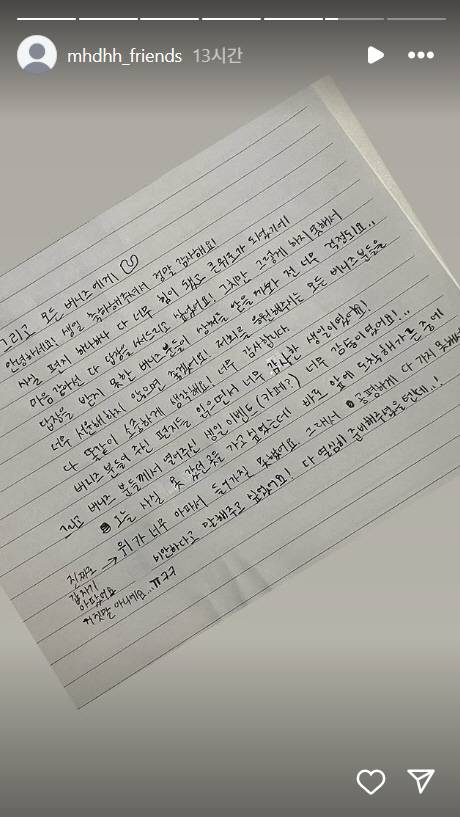 mhdhh_friends 13시간
그리고 모든 버니즈에게
안녕하세요! 생일 축하해주셔서 정말 감사해요!
사실 편지 하나하나 다 너무 힘이 됐고 큰 위로가 되었기에
마음 같아선 다 답장을 써드리고 싶었어요! 그치만 그렇게 하지 못해서
답장을 받지 못한 버니즈분들이 상처를 받을 까봐 전 너무 걱정되요..
너무 서운해하지 않으면 좋겠어요! 저희를 응원해주는 모든 버니즈분들을
다 똑같이 소중하게 생각해요! 너무 감사합니다
버니즈 분들이 주신 편지를 읽으면서 너무 감사한 생일이었어요!
그리고 버니즈 분들께서 열어주신 생일 이벤트 (카페?) 너무 감동이었어요!..
오늘 사실 못 갔던 곳을 가고 싶었는데 바로 앞에 도착해가는 중에
→ 위가 너무 아파서 들어가질 못했어요 그래서 공평하게 다 가지 못해서
미안하다고 말해주고 싶었어요! 다 열심히 준비해주셨을텐데..!
진짜로
갑자기
아팠어요
거짓말 아니에요...ㅠㅋㅋ